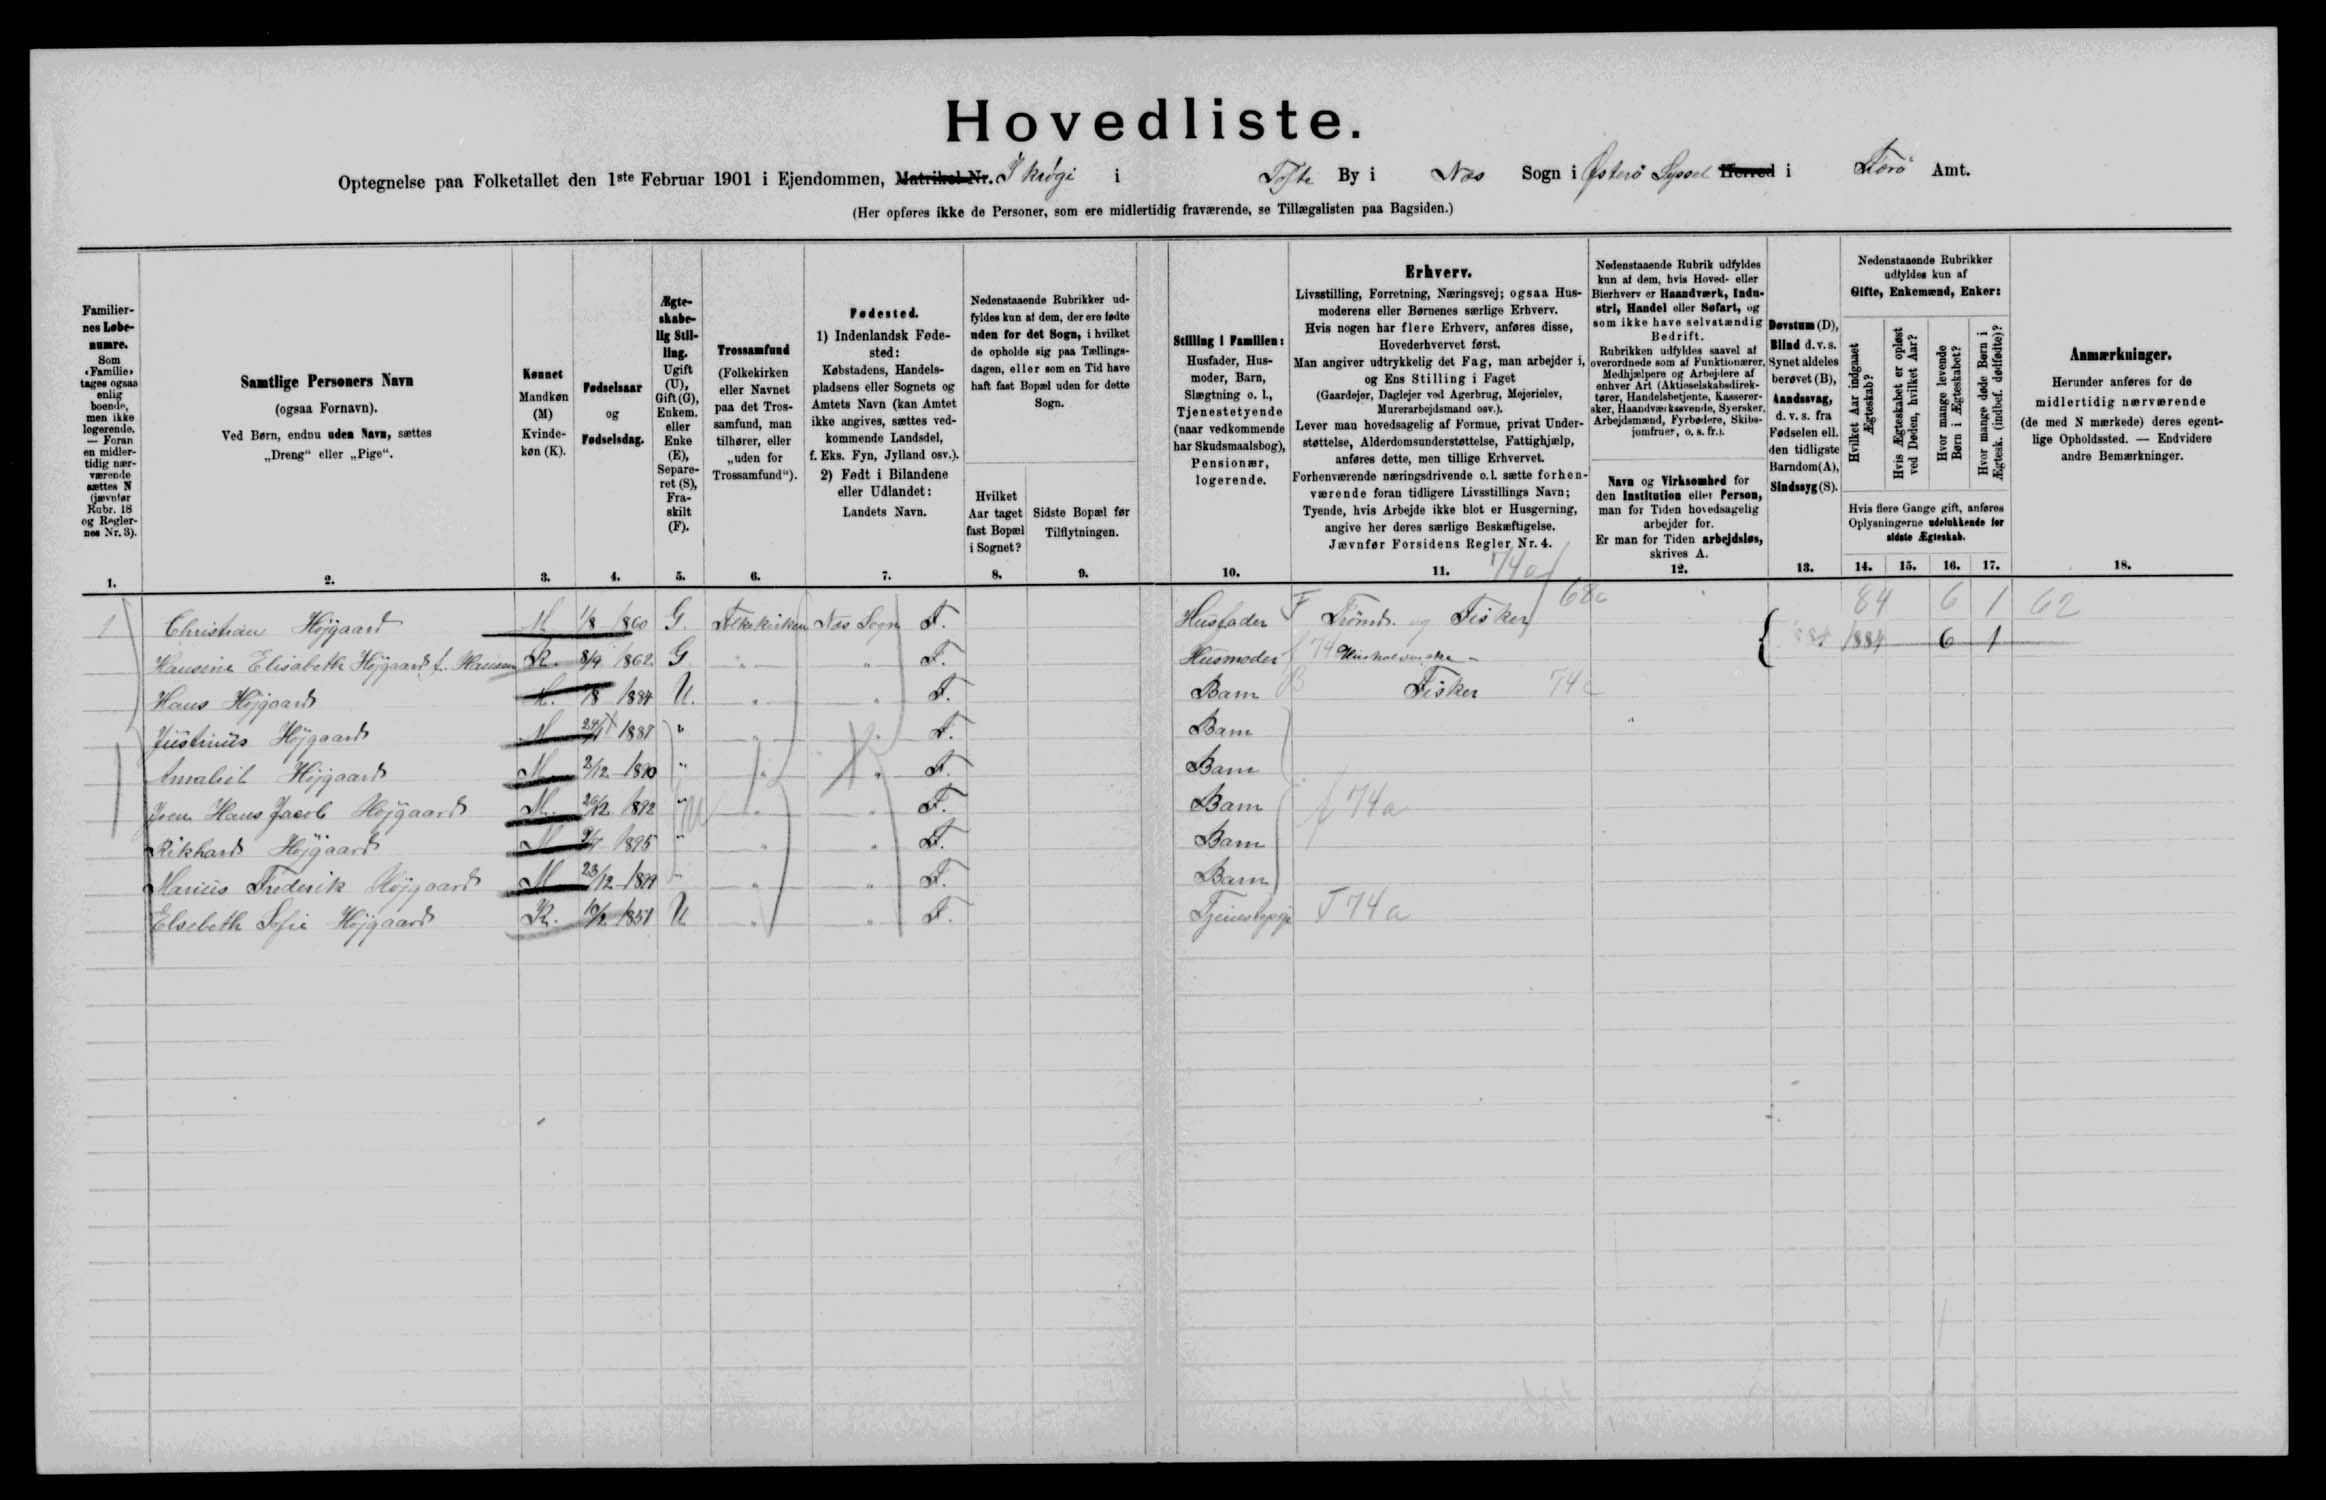 Hovedliste.
Optegnelse paa Folketallet den 1ste Februar 1901 i Ejendommen, Matrikel-Nr. I krógi i Tofte By i Næs Sogn i Østerø Syssel Herred i Færø Amt.
(Her opføres ikke de Personer, som ere midlertidig fraværende, se Tillægslisten paa Bagsiden.)
Familier-
nes Løbe-
numre.
Som
«Familie»
tages ogsaa
enlig
boende,
men ikke
logerende.
— Foran
en midler-
tidig nær-
værende
sættes N
(jævnfør
Rubr. 18
og Regler-
nes Nr. 3).
1.
Samtlige Personers Navn
(ogsaa Fornavn).
Ved Børn, endnu uden Navn, sættes
„Dreng“ eller „Pige“.
2.
Kønnet
Mandkøn
(M)
Kvinde-
køn (K).
3.
Fødselsaar
og
Fødselsdag.
4.
Ægte-
skabe-
lig Stil-
ling.
Ugift
(U),
Gift (G),
Enkem.
eller
Enke
(E),
Separe-
ret (S),
Fra-
skilt
(F).
5.
Trossamfund
(Folkekirken
eller Navnet
paa det Tros-
samfund, man
tilhører, eller
„uden for
Trossamfund“).
6.
Fødested.
1) Indenlandsk Føde-
sted:
Købstadens, Handels-
pladsens eller Sognets og
Amtets Navn (kan Amtet
ikke angives, sættes ved-
kommende Landsdel,
f. Eks. Fyn, Jylland osv.).
2) Født i Bilandene
eller Udlandet:
Landets Navn.
7.
Nedenstaaende Rubrikker ud-
fyldes kun af dem, der ere fødte
uden for det Sogn, i hvilket
de opholde sig paa Tællings-
dagen, eller som en Tid have
haft fast Bopæl uden for dette
Sogn.
Hvilket
Aar taget
fast Bopæl
i Sognet?
8.
Sidste Bopæl før
Tilflytningen.
9.
Stilling i Familien:
Husfader, Hus-
moder, Barn,
Slægtning o. l.,
Tjenestetyende
(naar vedkommende
har Skudsmaalsbog),
Pensionær,
logerende.
10.
Erhverv.
Livsstilling, Forretning, Næringsvej; ogsaa Hus-
moderens eller Børnenes særlige Erhverv.
Hvis nogen har flere Erhverv, anføres disse,
Hovederhvervet først.
Man angiver udtrykkelig det Fag, man arbejder i,
og Ens Stilling i Faget
(Gaardejer, Daglejer ved Agerbrug, Mejerielev,
Murerarbejdsmand osv.).
Lever man hovedsagelig af Formue, privat Under-
støttelse, Alderdomsunderstøttelse, Fattighjælp,
anføres dette, men tillige Erhvervet.
Forhenværende næringsdrivende o. l. sætte forhen-
værende foran tidligere Livsstillings Navn;
Tyende, hvis Arbejde ikke blot er Husgerning,
angive her deres særlige Beskæftigelse.
Jævnfør Forsidens Regler Nr. 4.
11.
Nedenstaaende Rubrik udfyldes
kun af dem, hvis Hoved- eller
Bierhverv er Haandværk, Indu-
stri, Handel eller Søfart, og
som ikke have selvstændig
Bedrift.
Rubrikken udfyldes saavel af
overordnede som af Funktionærer,
Medhjælpere og Arbejdere af
enhver Art (Aktieselskabsdirek-
tører, Handelsbetjente, Kasserer-
sker, Haandværkssvende, Syersker,
Arbejdsmænd, Fyrbødere, Skibs-
jomfruer, o. s. fr.).
Navn og Virksomhed for
den Institution eller Person,
man for Tiden hovedsagelig
arbejder for.
Er man for Tiden arbejdsløs,
skrives A.
12.
Døvstum (D),
Blind d. v. s.
Synet aldeles
berøvet (B),
Aandssvag,
d. v. s. fra
Fødselen ell.
den tidligste
Barndom (A),
Sindssyg (S).
13.
Nedenstaaende Rubrikker
udfyldes kun af
Gifte, Enkemænd, Enker:
Hvilket Aar indgaaet
Ægteskab?
Hvis Ægteskabet er opløst
ved Døden, hvilket Aar?
Hvor mange levende
Børn i Ægteskabet?
Hvor mange døde Børn i
Ægtesk. (indbef. dødfødte)?
Hvis flere Gange gift, anføres
Oplysningerne udelukkende for
sidste Ægteskab.
14. 15. 16. 17.
Anmærkninger.
Herunder anføres for de
midlertidig nærværende
(de med N mærkede) deres egent-
lige Opholdssted. — Endvidere
andre Bemærkninger.
18.
74a 68c
1 Christian Højgaard M. 1/8 1860 G. Folkekirken Næs Sogn F. Husfader F og Fisker 84 6 1 62
Hansine Elisabeth Højgaard f. Hansen K. 8/9 1862 G " " F. Husmoder f 74 1884 6 1
Hans Højgaard M. 1884 U. " " F. Barn B Fisker 74a
Justinus Højgaard M 1887 " " " F. Barn
Højgaard M 2/12 1890 " " " F. Barn
Joen Hans Jacob Højgaard M. 26/12 1892 " " " F. Barn f 74a
Rikhard Højgaard M 1895 " " " F. Barn
Marius Frederik Højgaard M 23/12 1899 " " " F. Barn
Elsebeth Sofie Højgaard K. 1851 U " " F. Tjenestepige T 74a